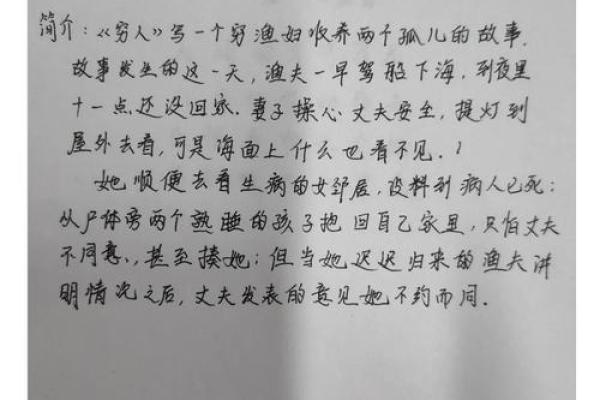 简介：《穷人》写一个穷渔妇收养两个孤儿的故事.
故事发生的这一天，渔夫一早驾船下海，到夜里
十一点还没回家.妻子操心丈夫安全，提灯到
屋外去看，可是海面上什么也看不见.
她顺便去看生病的女邻居，没料到病人已死；
从尸体旁两个熟睡的孩子抱回自己家里，只怕丈夫
不同意，甚至揍她；但当她迟迟归来的渔夫讲
明情况之后，丈夫发表的意见她不约而同.